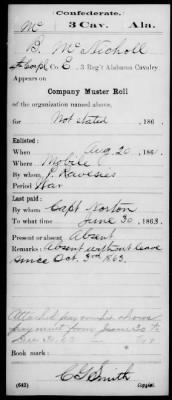 Confederate.
Mc 3 Cav. Ala.
B. McNicholl
Corpl Co. E, 3 Reg't Alabama Cavalry.
Appears on
Company Muster Roll
of the organization named above,
for Not stated , 186 .
Enlisted:
When Aug. 20 , 186 .
Where Mobile
By whom J.
Period War
Last paid:
By whom Capt Norton
To what time June 30 , 1863.
Present or absent Absent
Remarks: Absent without leave
since Oct. 3rd 1863.
Attached pay roll shows
payment from June 30 to
63
Book mark:
C G Smith
(642) Copyist.